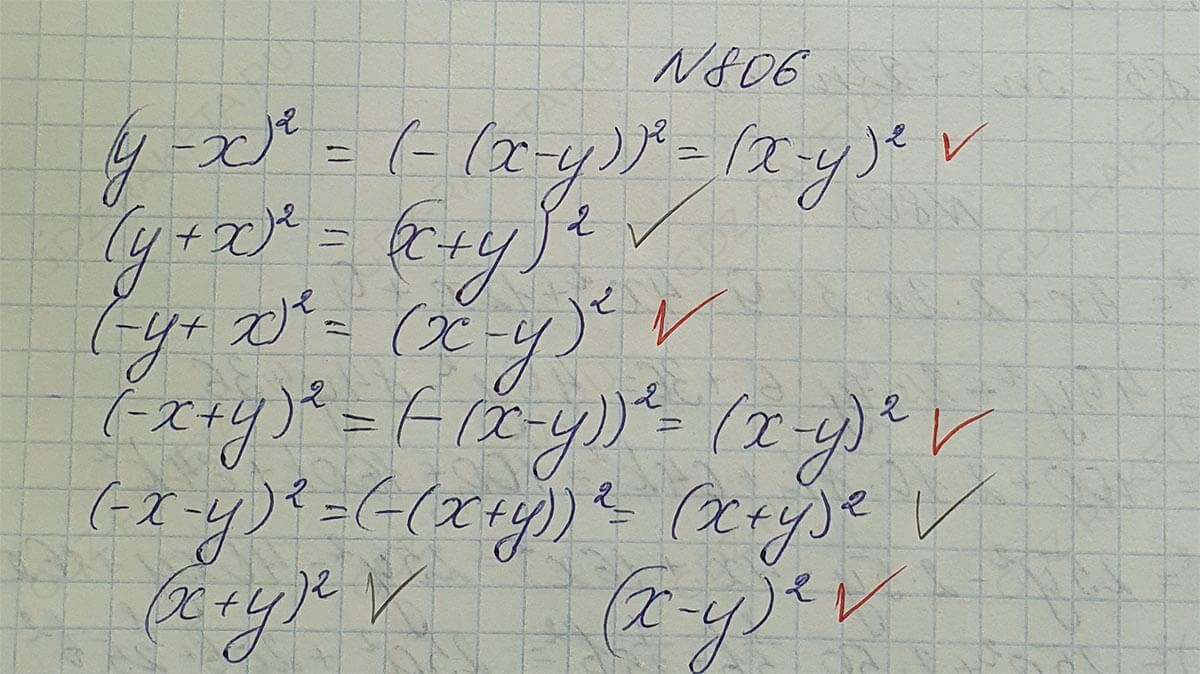 N806
(y-x)² = (-(x-y))² = (x-y)² ✓
(y+x)² = (x+y)² ✓
(-y+x)² = (x-y)² ✓
(-x+y)² = (-(x-y))² = (x-y)² ✓
(-x-y)² = (-(x+y))² = (x+y)² ✓
(x+y)² ✓ (x-y)² ✓